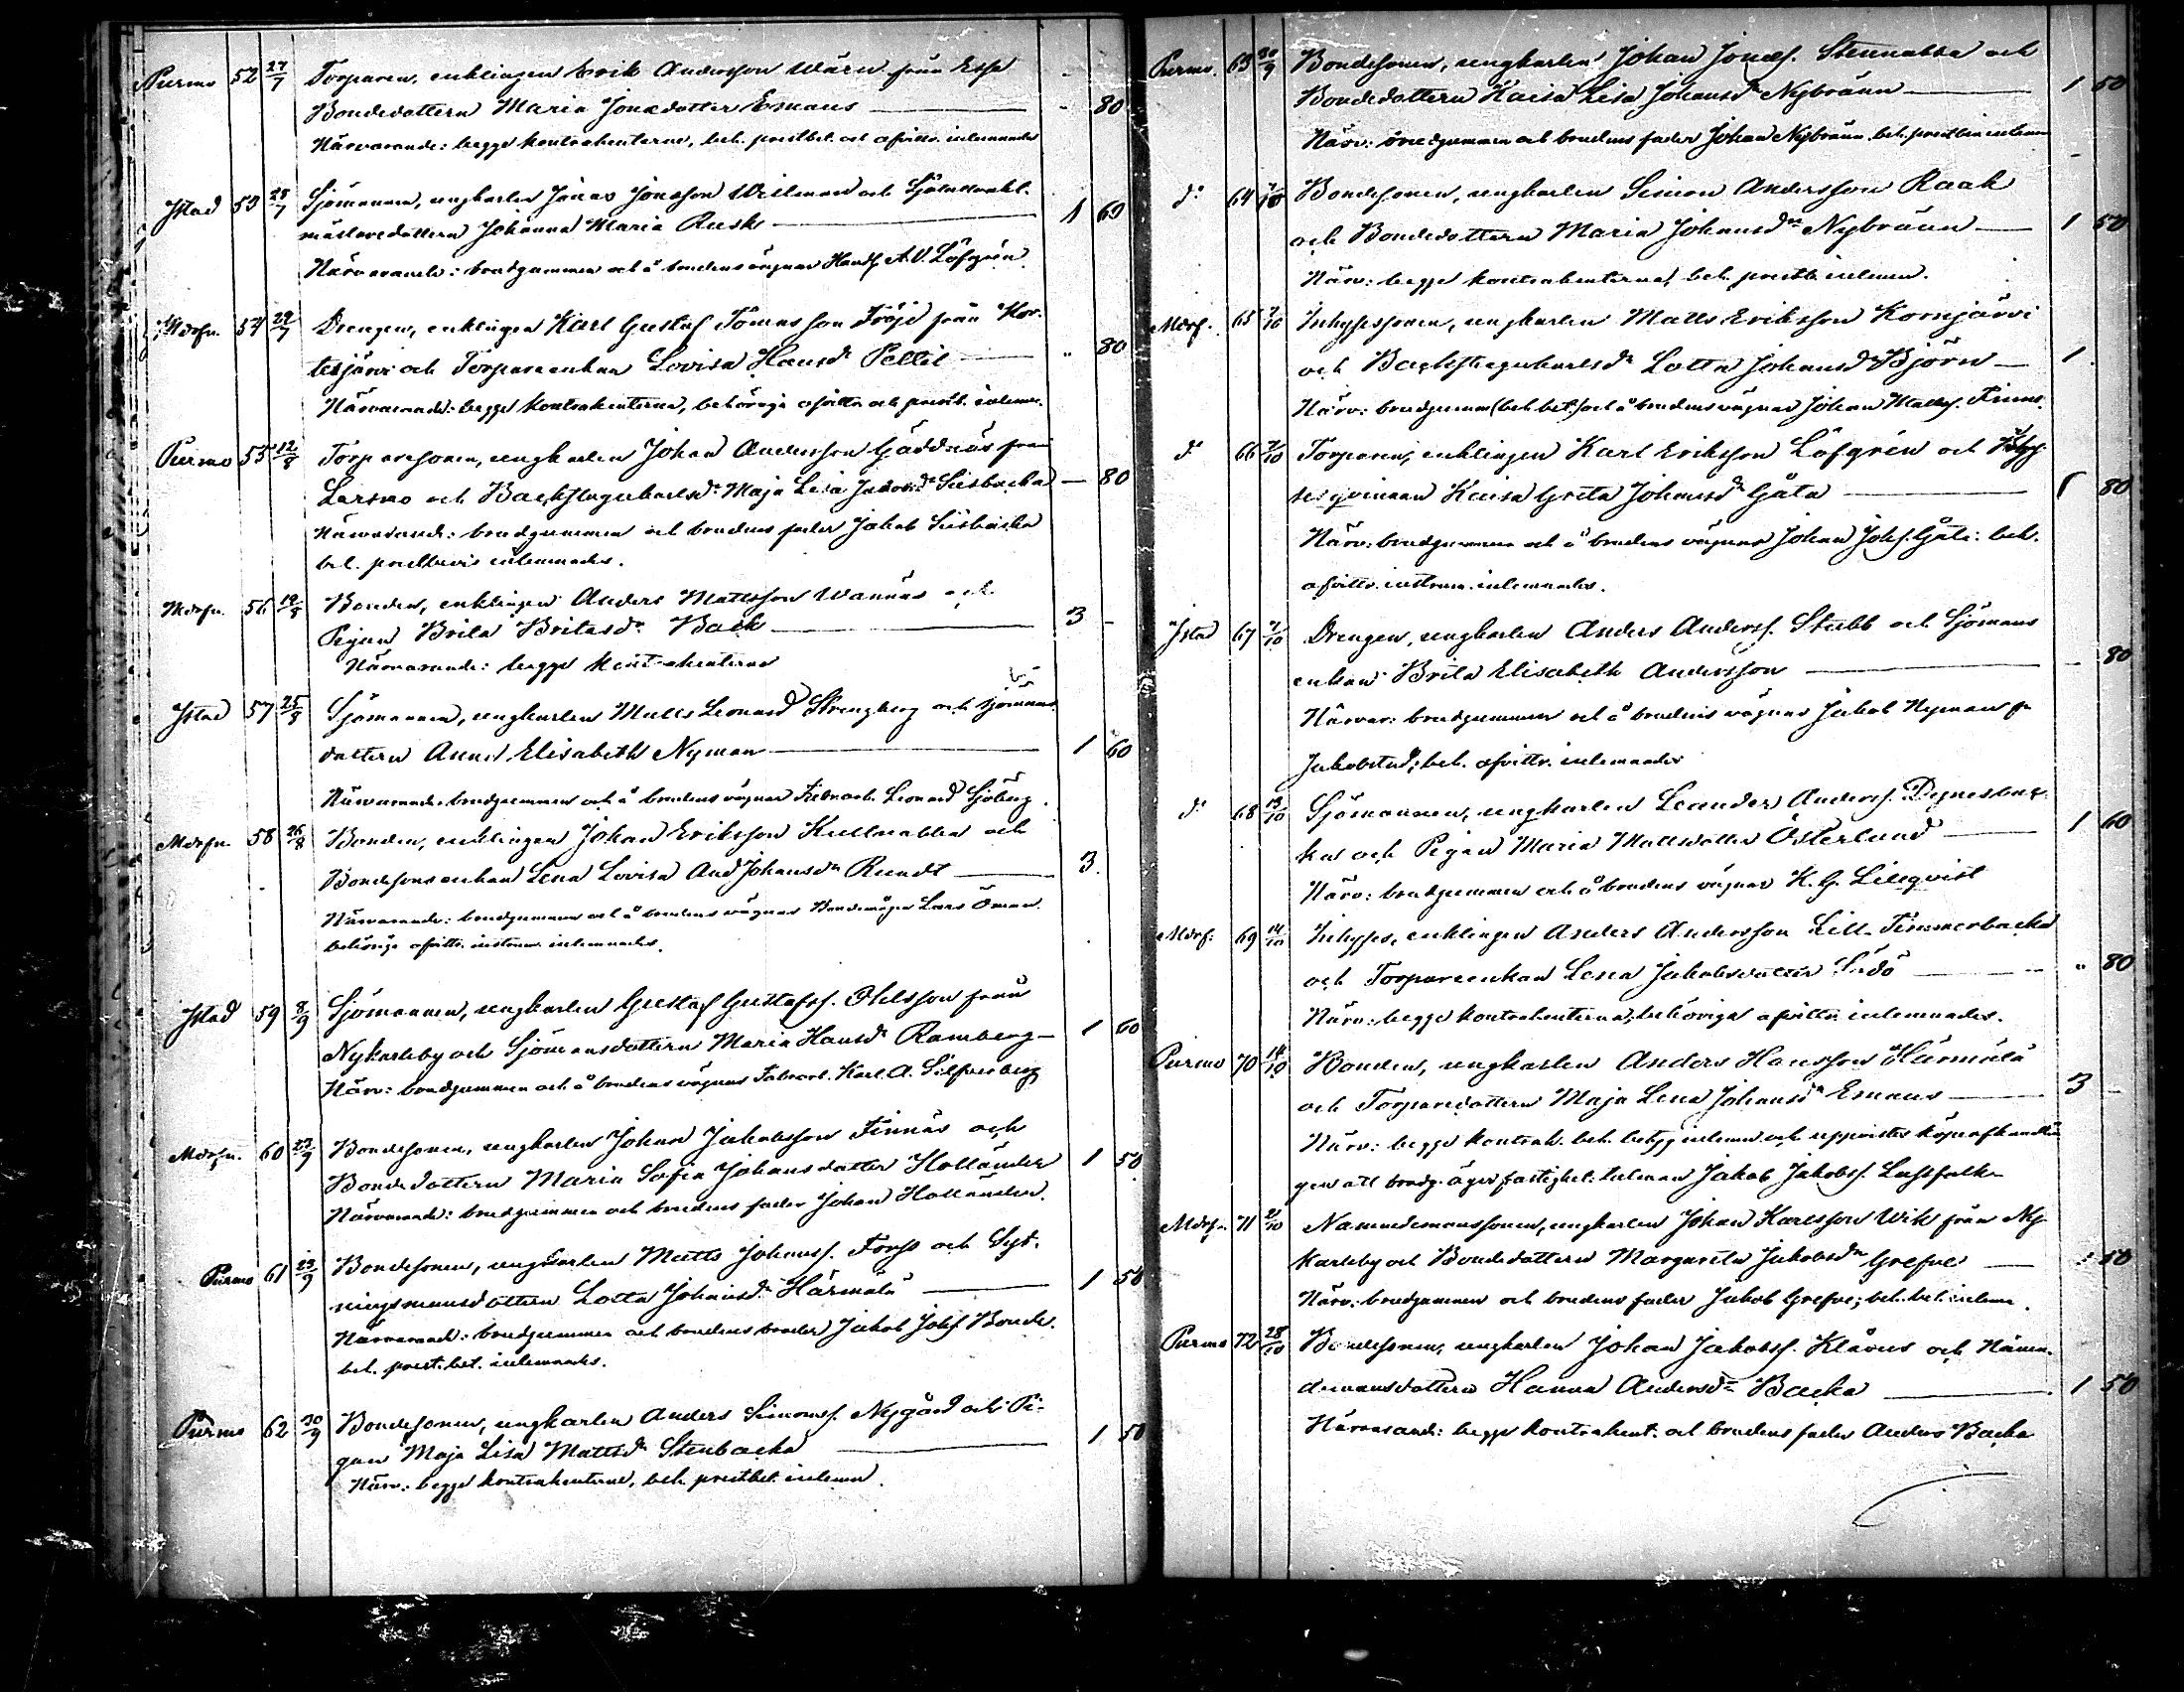 Purmo 52 27/7 Torparen, enklingen Erik Andersson Wärn från Esse
Bondedottern Maria Jonasdotter Emaus — " 80
Närvarande: begge kontrahenterne, beh. prestbet. och afvittr. inlemnades
Jstad 53 28/7 Sjömannen, ungkarlen Jonas Jonsson och
mästaredottern Johanna Maria Rusk — 1 60
Närvarande: brudgummen och å brudens vägnar Handl. A.V. Löfgrén
Mdrsn. 54 29/7 Drengen, enklingen Karl Gustaf Tomasson Fröjd från Kor-
tesjärvi och Torpareenkan Lovisa Hansdr — " 80
Närvarande: begge kontrahenterne, behöriga afvittr. och prestb. inlemn.
Purmo 55 12/8 Torparesonen, ungkarlen Johan Andersson Gäddnäs från
Larsmo och Backstugukarlsdr. Maja Lisa Jakobsdr Sisbacka — 80
Närvarande: brudgummen och brudens fader Jakob Sisbacka
beh. prestbevis inlemnades.
Mdrsn. 56 19/8 Bonden, enklingen Anders Mattsson Wannäs och
Pigan Brita Britasdr. Back — 3 -
Närvarande: begge kontrahenterne
Jstad 57 25/8 Sjömannen, ungkarlen Matts Leonard Strengberg och sjömans-
dottern Anna Elisabeth Nyman — 1 60
Närvarande: brudgummen och å brudens vägnar Leonard Sjöberg.
Mdrsn. 58 26/8 Bonden, enklingen Johan Eriksson Kullnabba och
Bondesonsenkan Lena Lovisa And Johansdr Rundt — 3.
Närvarande: brudgummen och å brudens vägnar Lars Öman.
behöriga afvittr. instrum. inlemnades.
Jstad 59 8/9 Sjömannen, ungkarlen Gustaf Gustafss. Ohlsson från
Nykarleby och Sjömansdottern Maria Hansdr Ramberg — 1 60
Närv: brudgummen och å brudens vägnar Karl A. Silfverberg
Mdrsn. 60 23/9 Bondesonen, ungkarlen Johan Jakobsson Finnäs och
Bondedottern Maria Sofia Johansdotter Holländer 1 50
Närvarande: brudgummen och brudens fader Johan Holländer.
Purmo 61 23/9 Bondesonen, ungkarlen Matts Johanss. Forss och Syt-
ningsmansdottern Lotta Johansdr Härmälä — 1 50
Närvarande: brudgummen och brudens broder Jakob Johss Bonde.
beh. prest.bet. inlemnades.
Purmo 62 30/9 Bondesonen, ungkarlen Anders Simonss. Nygård och Pi-
gan Maja Lisa Mattsdr Stenbacka — 1 50
Närv: begge kontrahenterne, beh. prestbet. inlemn.
Purmo. 63 30/9 Bondesonen, ungkarlen Johan Jonass. Stennabba och
Bondedottern Kaisa Lisa Johansdr Nybränn — 1 50
Närv: brudgummen och brudens fader Johan Nybränn beh. prestbev inlemn
do 64 7/10 Bondesonen, ungkarlen Simon Andersson Raak
och Bondedottern Maria Johansdr Nybränn — 1 50
Närv: begge kontrahenterne, beh. prestb. inlemn.
Mdrs. 65 7/10 Inhysessonen, ungkarlen Matts Eriksson Kornjärvi
och Backstugukarlsdr Lotta Johansdr Björn — 1.
Närv: brudgumm (beh. bet.) och å brudens vägnar Johan Matts. Finne.
do 66 7/10 Torparen, enklingen Karl Eriksson Löfgrén och Inhy-
sesqvinnan Kaisa Greta Johansdr Gåta — 80
Närv: brudgummen och å brudens vägnar Johan Johs. Gåta: beh.
afvittr. instrum. inlemnades.
Jstad 67 7/10 Drengen, ungkarlen Anders Anderss. Stubb och Sjömans
enkan Brita Elisabeth Andersson — - 80
Närvar: brudgummen och å brudens vägnar Jakob Nyman fr
Jakobstad; beh. afvittr. inlemnades
do 68 13/10 Sjömannen, ungkarlen Leander Anderss.
kar och Pigan Maria Mattsdotter Österlund — 1 60
Närv: brudgummen och å brudens vägnar K. G. Lileqvist
Mdrs: 69 14/10 Inhyses, enklingen Anders Andersson Lill-Timmerbacka
och Torpareenkan Lena Jakobsdotter — " 80
Närv: begge kontrahenterna; behöriga afvittr. inlemnades.
Purmo 70 14/10 Bonden, ungkarlen Anders Hansson Härmälä
och Torparedottern Maja Lena Johansdr Emaus — 3 -
Närv: begge kontrah. beh. betyg inlemn. och uppvistes köpeafhandlin-
gen att brudg. äger fastighet. Jakob Jakobss.
Mdrsn. 71 21/10 Nämndemanssonen, ungkarlen Johan Karlsson Wik från Ny-
karleby och Bondedottern Margareta Jakobsdr Grefve — 50
Närv: brudgummen och brudens fader Jakob Grefve; beh. bet. inlemn.
Purmo 72 28/10 Bondesonen, ungkarlen Johan Jakobss. Klåvus och Nämn-
demansdottern Hanna Andersdr Backa — 1 50
Närvarand: begge kontrahent. och brudens fader Anders Backa